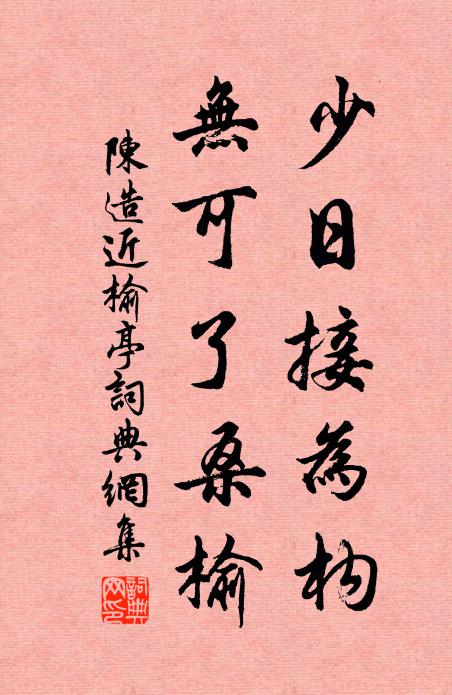 少日接為枸
無可了桑榆
陳造近榆亭詞典網集
詞典網印